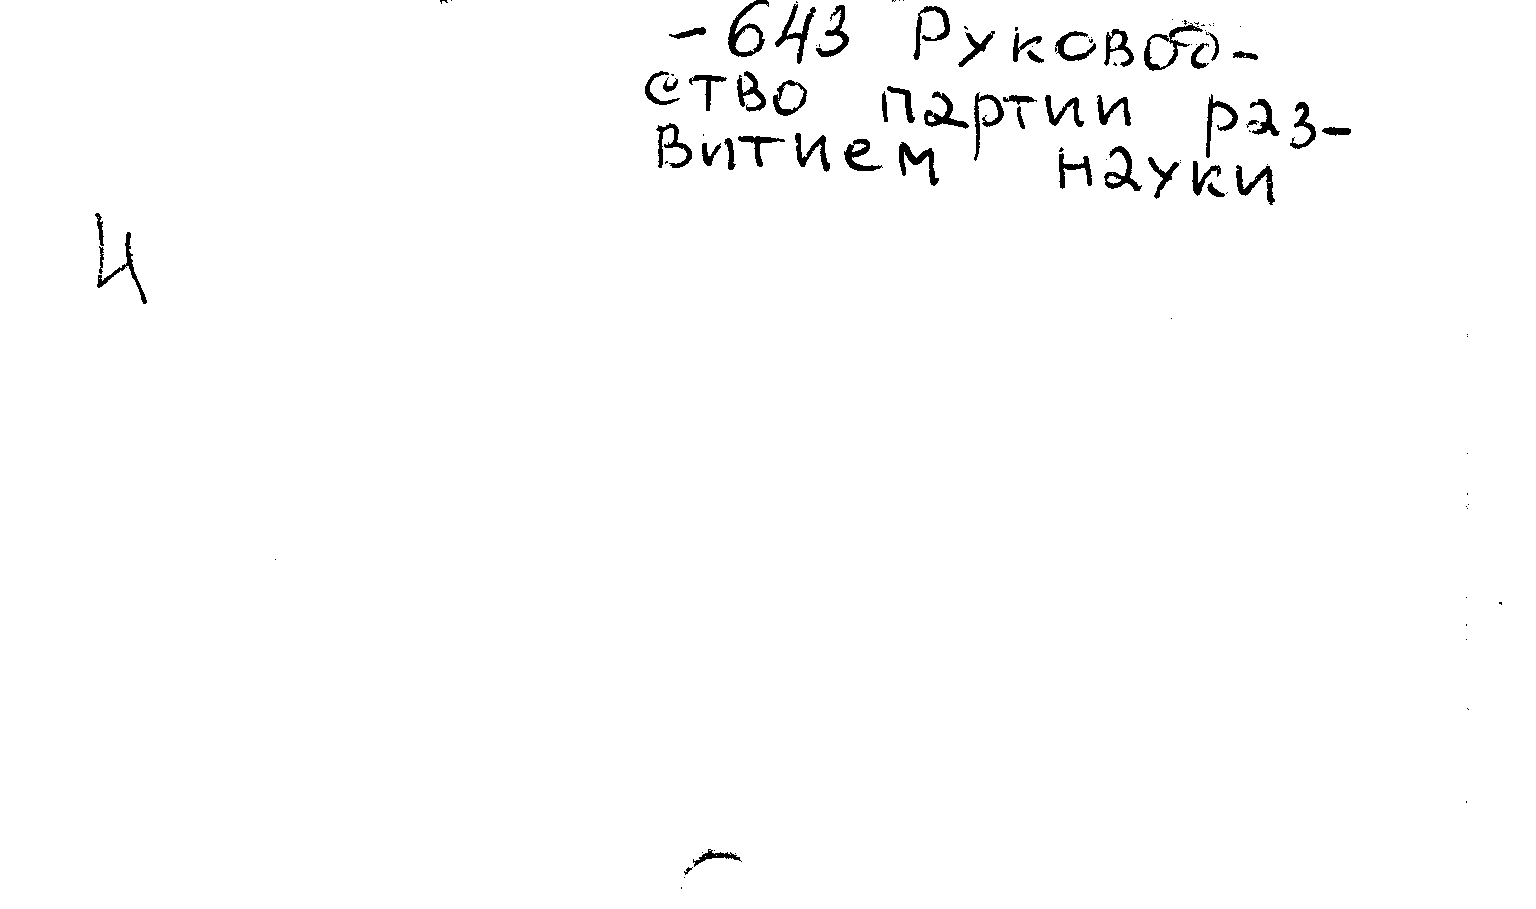 -643 Руковод-
ство партии раз-
витием науки